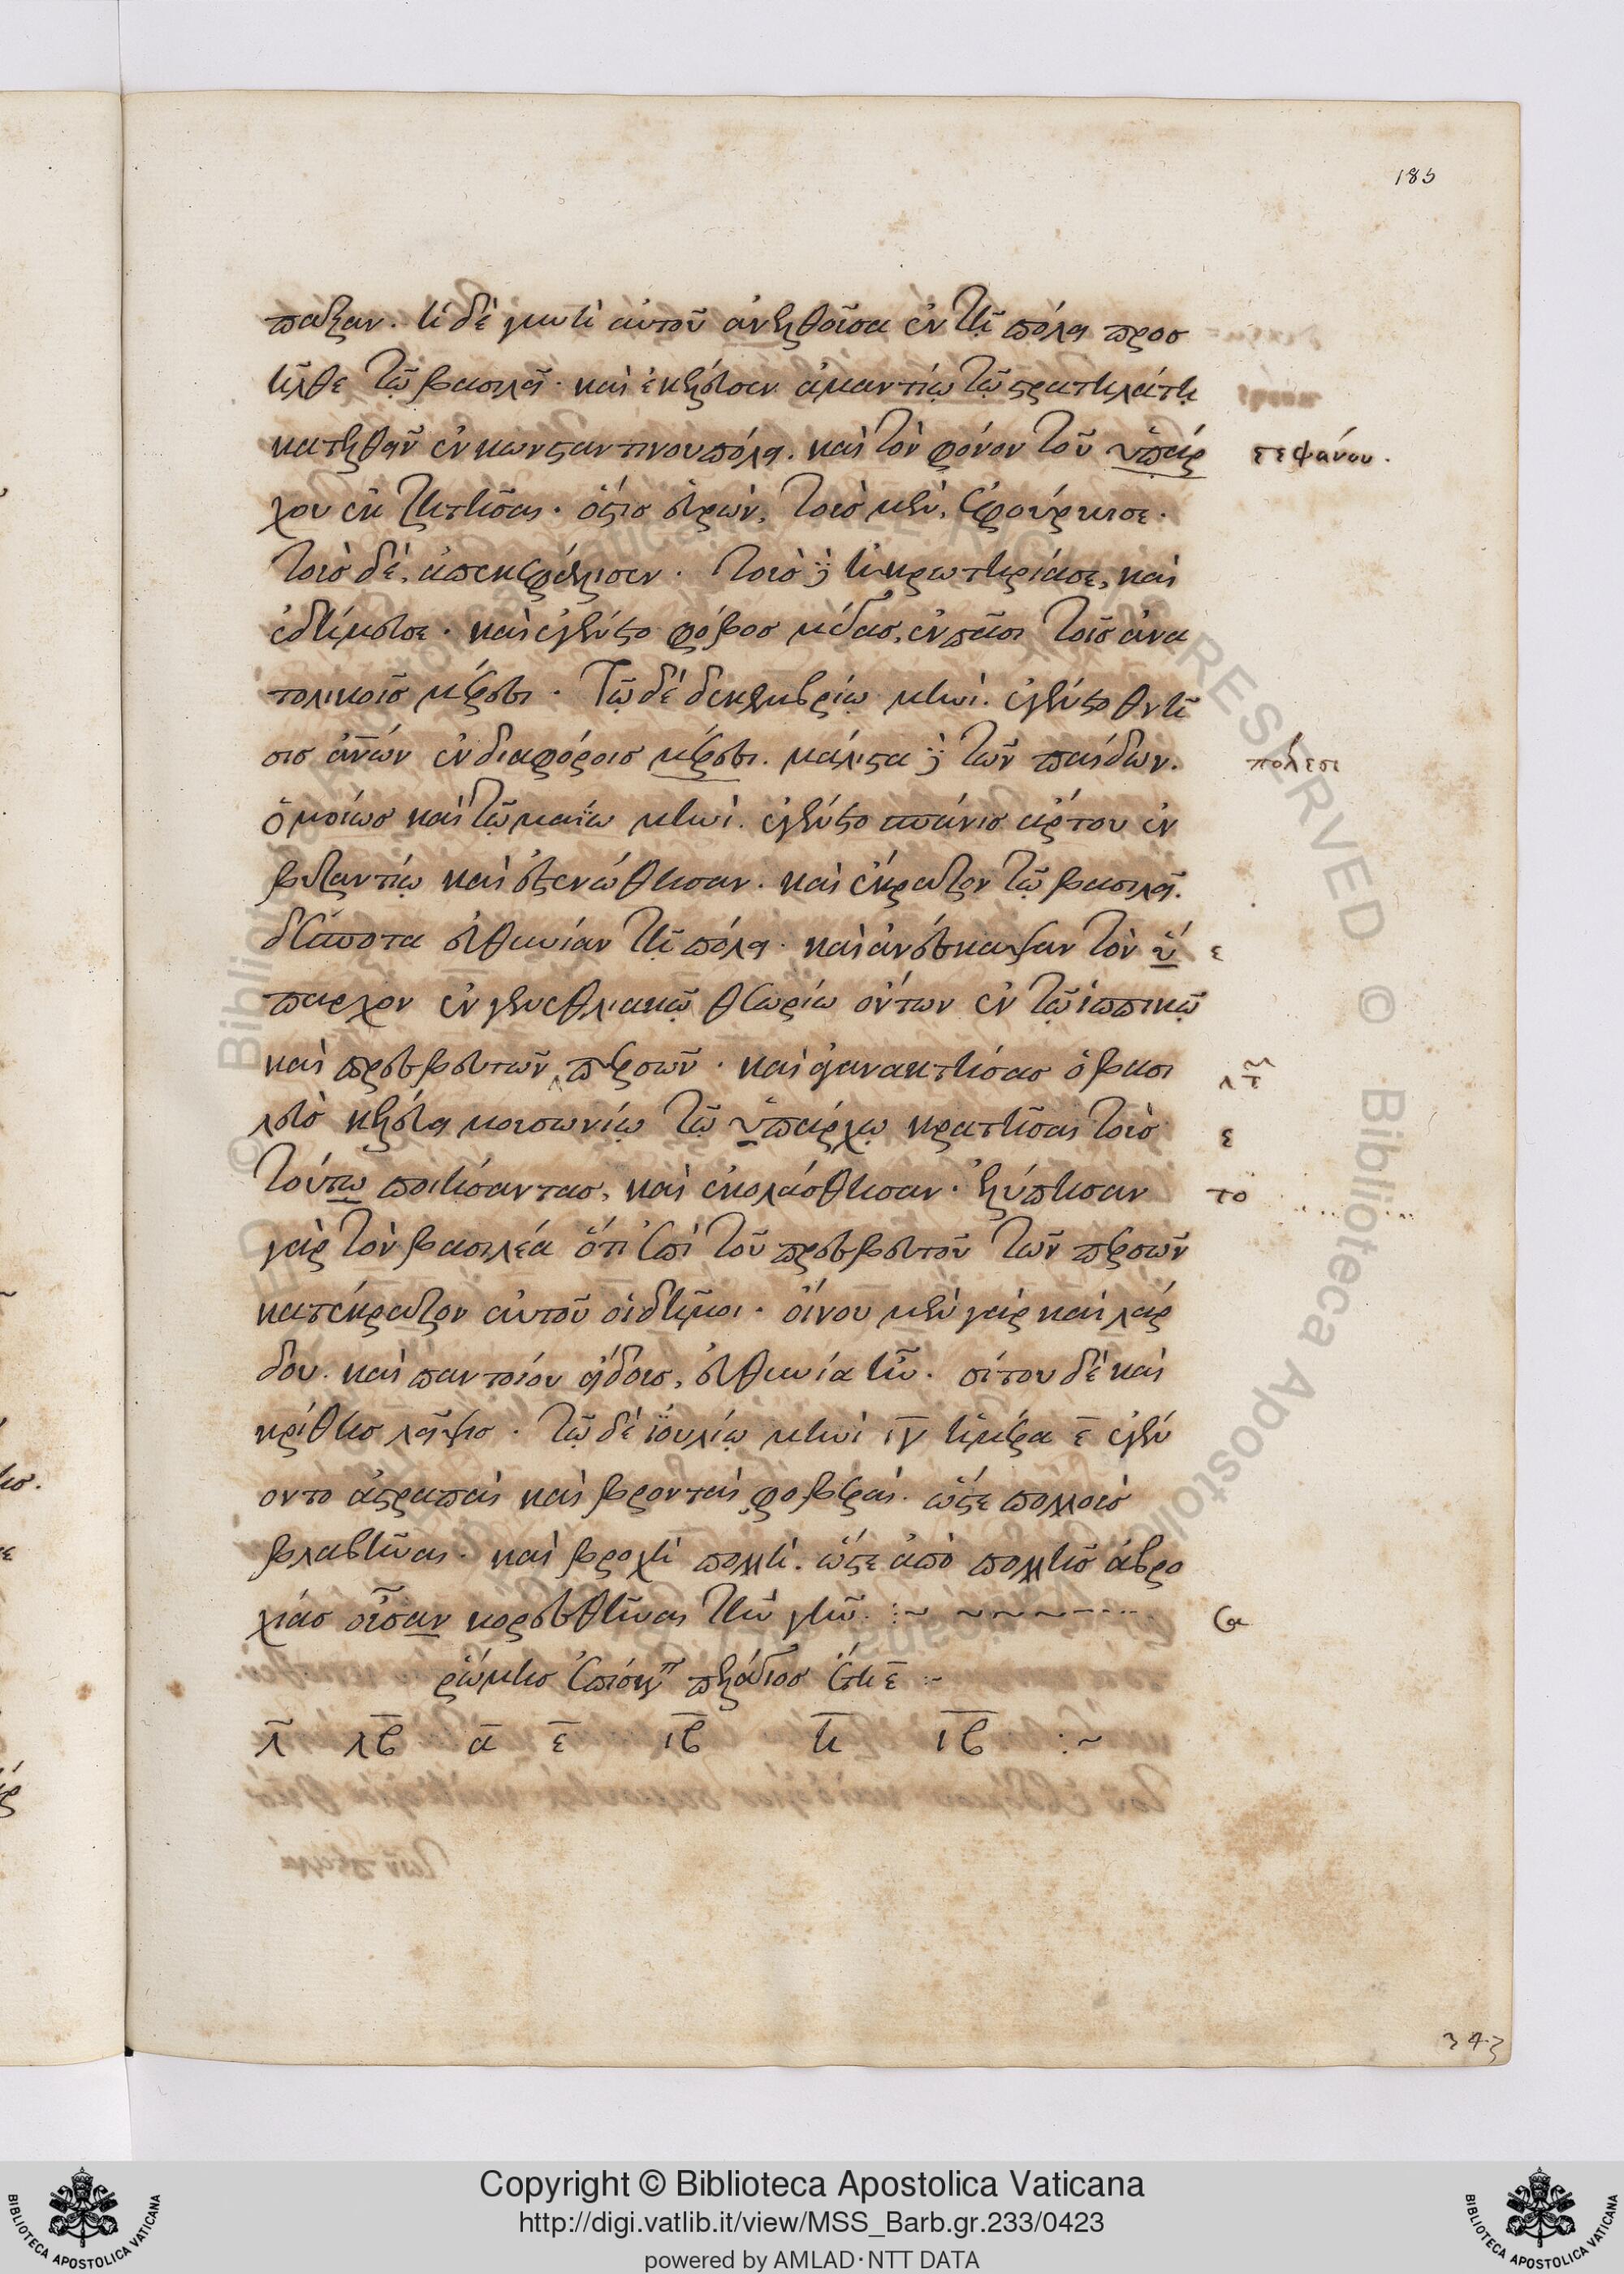 185
παξαν. ἡ δὲ γυνὴ αὐτοῦ ἀνελθοῦσα ἐν τῇ πόλει προσ
ῆλθε τῷ βασιλεῖ. καὶ ἐκέλευσεν ἀμαντίῳ τῷ στρατηλάτῃ
κατελθεῖν ἐν κωνσταντινουπόλει. καὶ τὸν φόνον τοῦ ὑπάρ στεφάνου.
χου ἐκζητῆσαι. ὅστις εὑρὼν, τοὺς μὲν, ἐφούρκισε.
τοὺς δὲ, ἀπεκεφάλισεν. τοὺς δὲ ἠκρωτηρίασε, καὶ
ἐδήμευσε. καὶ ἐγένετο φόβος μέγας, ἐν πᾶσι τοῖς ἀνα
τολικοῖς μέρεσι. Τῷ δὲ δεκεμβρίῳ μηνὶ. ἐγένετο θνῆ
σις ἀνῶν ἐν διαφόροις μέρεσι. μάλιστα δὲ τῶν παίδων. πόλεσι
ὁμοίως καὶ τῷ μαΐω μηνὶ. ἐγένετο σπάνις ἄρτου ἐν
βυζαντίῳ καὶ ἐστενώθησαν. καὶ ἔκραζον τῷ βασιλεῖ.
δέσποτα εὐθηνίαν τῇ πόλει. καὶ ἀνέσκαψαν τὸν ὕ ε
παρχον ἐν γενεθλιακῷ θεωρίω ὄντων ἐν τῷ ἱππικῷ
καὶ πρεσβευτῶν περσῶν. καὶ ἀγανακτήσας ὁ βασι
λεὺς κελεύει μουσωνίῳ τῷ ὑπάρχῳ κρατῆσαι τοὺς ε
τούτω ποιήσαντας, καὶ ἐκολάσθησαν. ἐλύπησαν το
γὰρ τὸν βασιλέα ὅτι ἐπὶ τοῦ πρεσβευτοῦ τῶν περσῶν
κατέκραζον αὐτοῦ οἱ δῆμοι. οἴνου μὲν γὰρ καὶ λάρ
δου. καὶ παντοίου εἴδους, εὐθηνία ἦν. σίτου δὲ καὶ
κρίθης λεῖψις. τῷ δὲ ἰουλίῳ μηνὶ ιγ ἡμέρα ε ἐγέν
οντο ἀστραπαὶ καὶ βρονταὶ φοβεραί. ὥστε πολλοὺς
βλαβῆναι. καὶ βροχὴ πολλὴ. ὥστε ἀπὸ πολλῆς ἀβρο
χίας οὖσαν κορεσθῆναι τὴν γῆν. :~ ~~~~
ῥώμης ἐπίσκοπ πελάγιος ἔτη ε :~
λ λβ α ε ιβ η ιβ :~
343
Copyright © Biblioteca Apostolica Vaticana
http://digi.vatlib.it/view/MSS_Barb.gr.233/0423
powered by AMLAD·NTT DATA
BIBLIOTECA APOSTOLICA VATICANA
BIBLIOTECA APOSTOLICA VATICANA